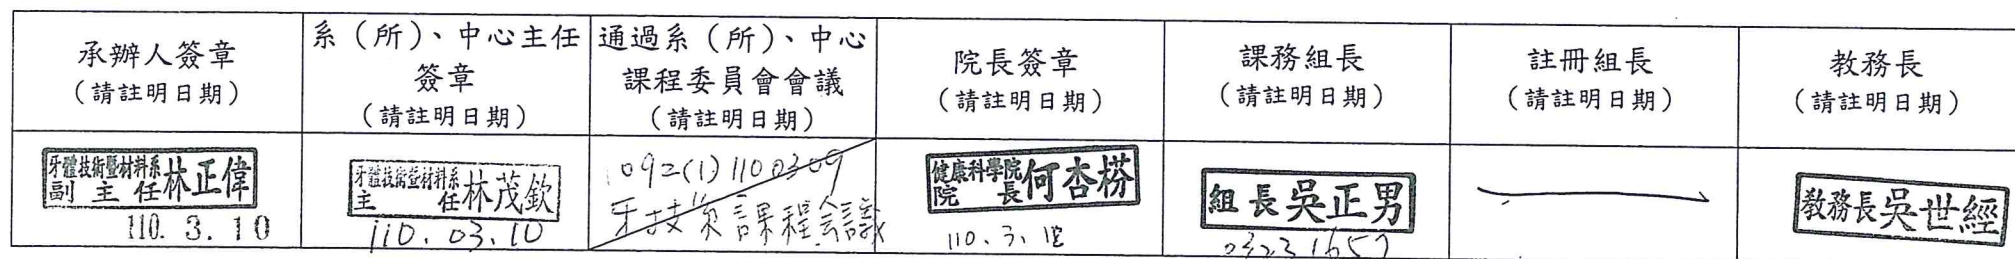 承辦人簽章
(請註明日期)
系(所)、中心主任
簽章
(請註明日期)
通過系(所)、中心
課程委員會會議
(請註明日期)
院長簽章
(請註明日期)
課務組長
(請註明日期)
註冊組長
(請註明日期)
教務長
(請註明日期)
牙體技術暨材料系
副主任林正偉
110. 3. 10
牙體技術暨材料系
主任林茂欽
110. 03. 10
092(1)1100309
牙技系課程會議
健康科學院
院長何杏棻
110. 3. 12
組長吳正男
0323 1657
教務長吳世經